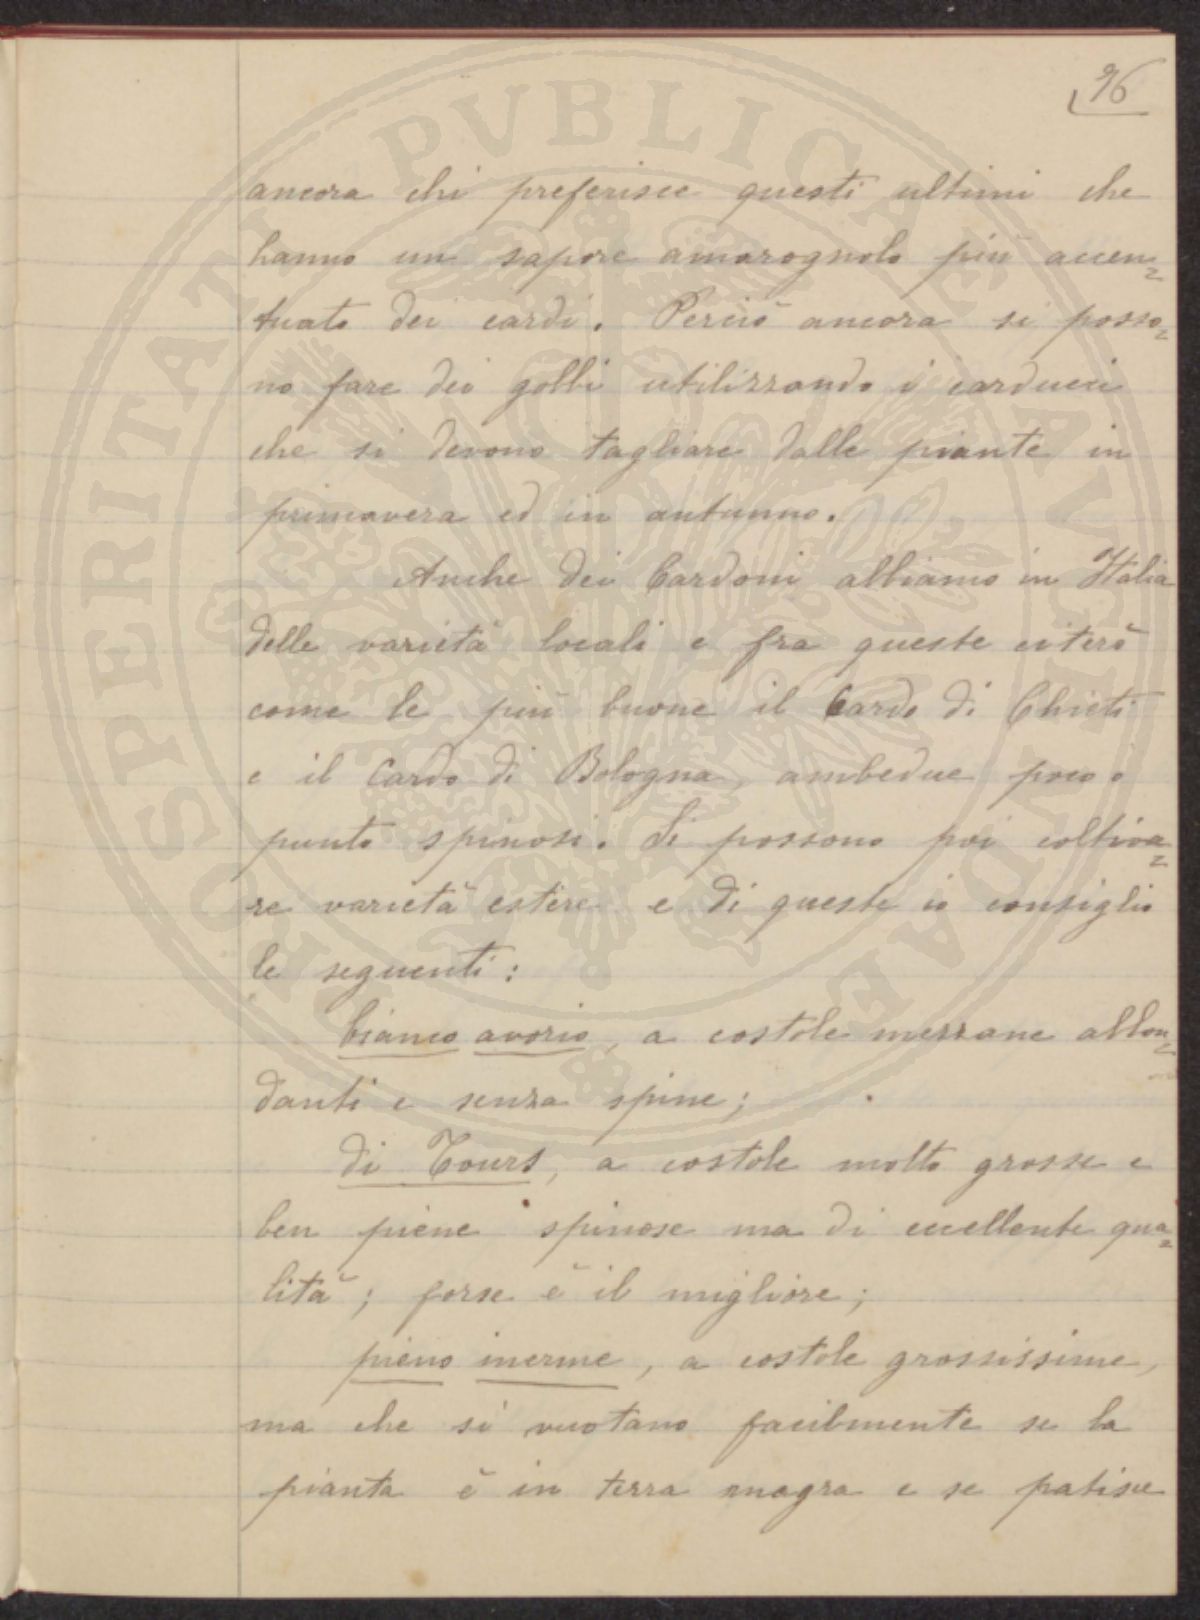 96
ancora chi preferisce questi ultimi che
hanno un sapore amarognolo più accen=
tuato dei cardi. Perciò ancora si posso=
no fare dei gobbi utilizzando i carducci
che si devono tagliare dalle piante in
primavera ed in autunno.
Anche dei Cardoni abbiamo in Italia
delle varietà locali e fra queste citerò
come le più buone il Cardo di Chieti
e il Cardo di Bologna, ambedue poco o
punto spinosi. Si possono poi coltiva=
re varietà estere e di queste io consiglio
le seguenti:
bianco avorio, a costole mezzane abbon=
danti e senza spine;
di Tours, a costole molto grosse e
ben piene spinose ma di eccellente qua=
lità; forse è il migliore;
pieno inerme, a costole grossissime,
ma che si vuotano facilmente se la
pianta è in terra magra e se patisce
PROSPERITATI PVBLICAE AVGENDAE